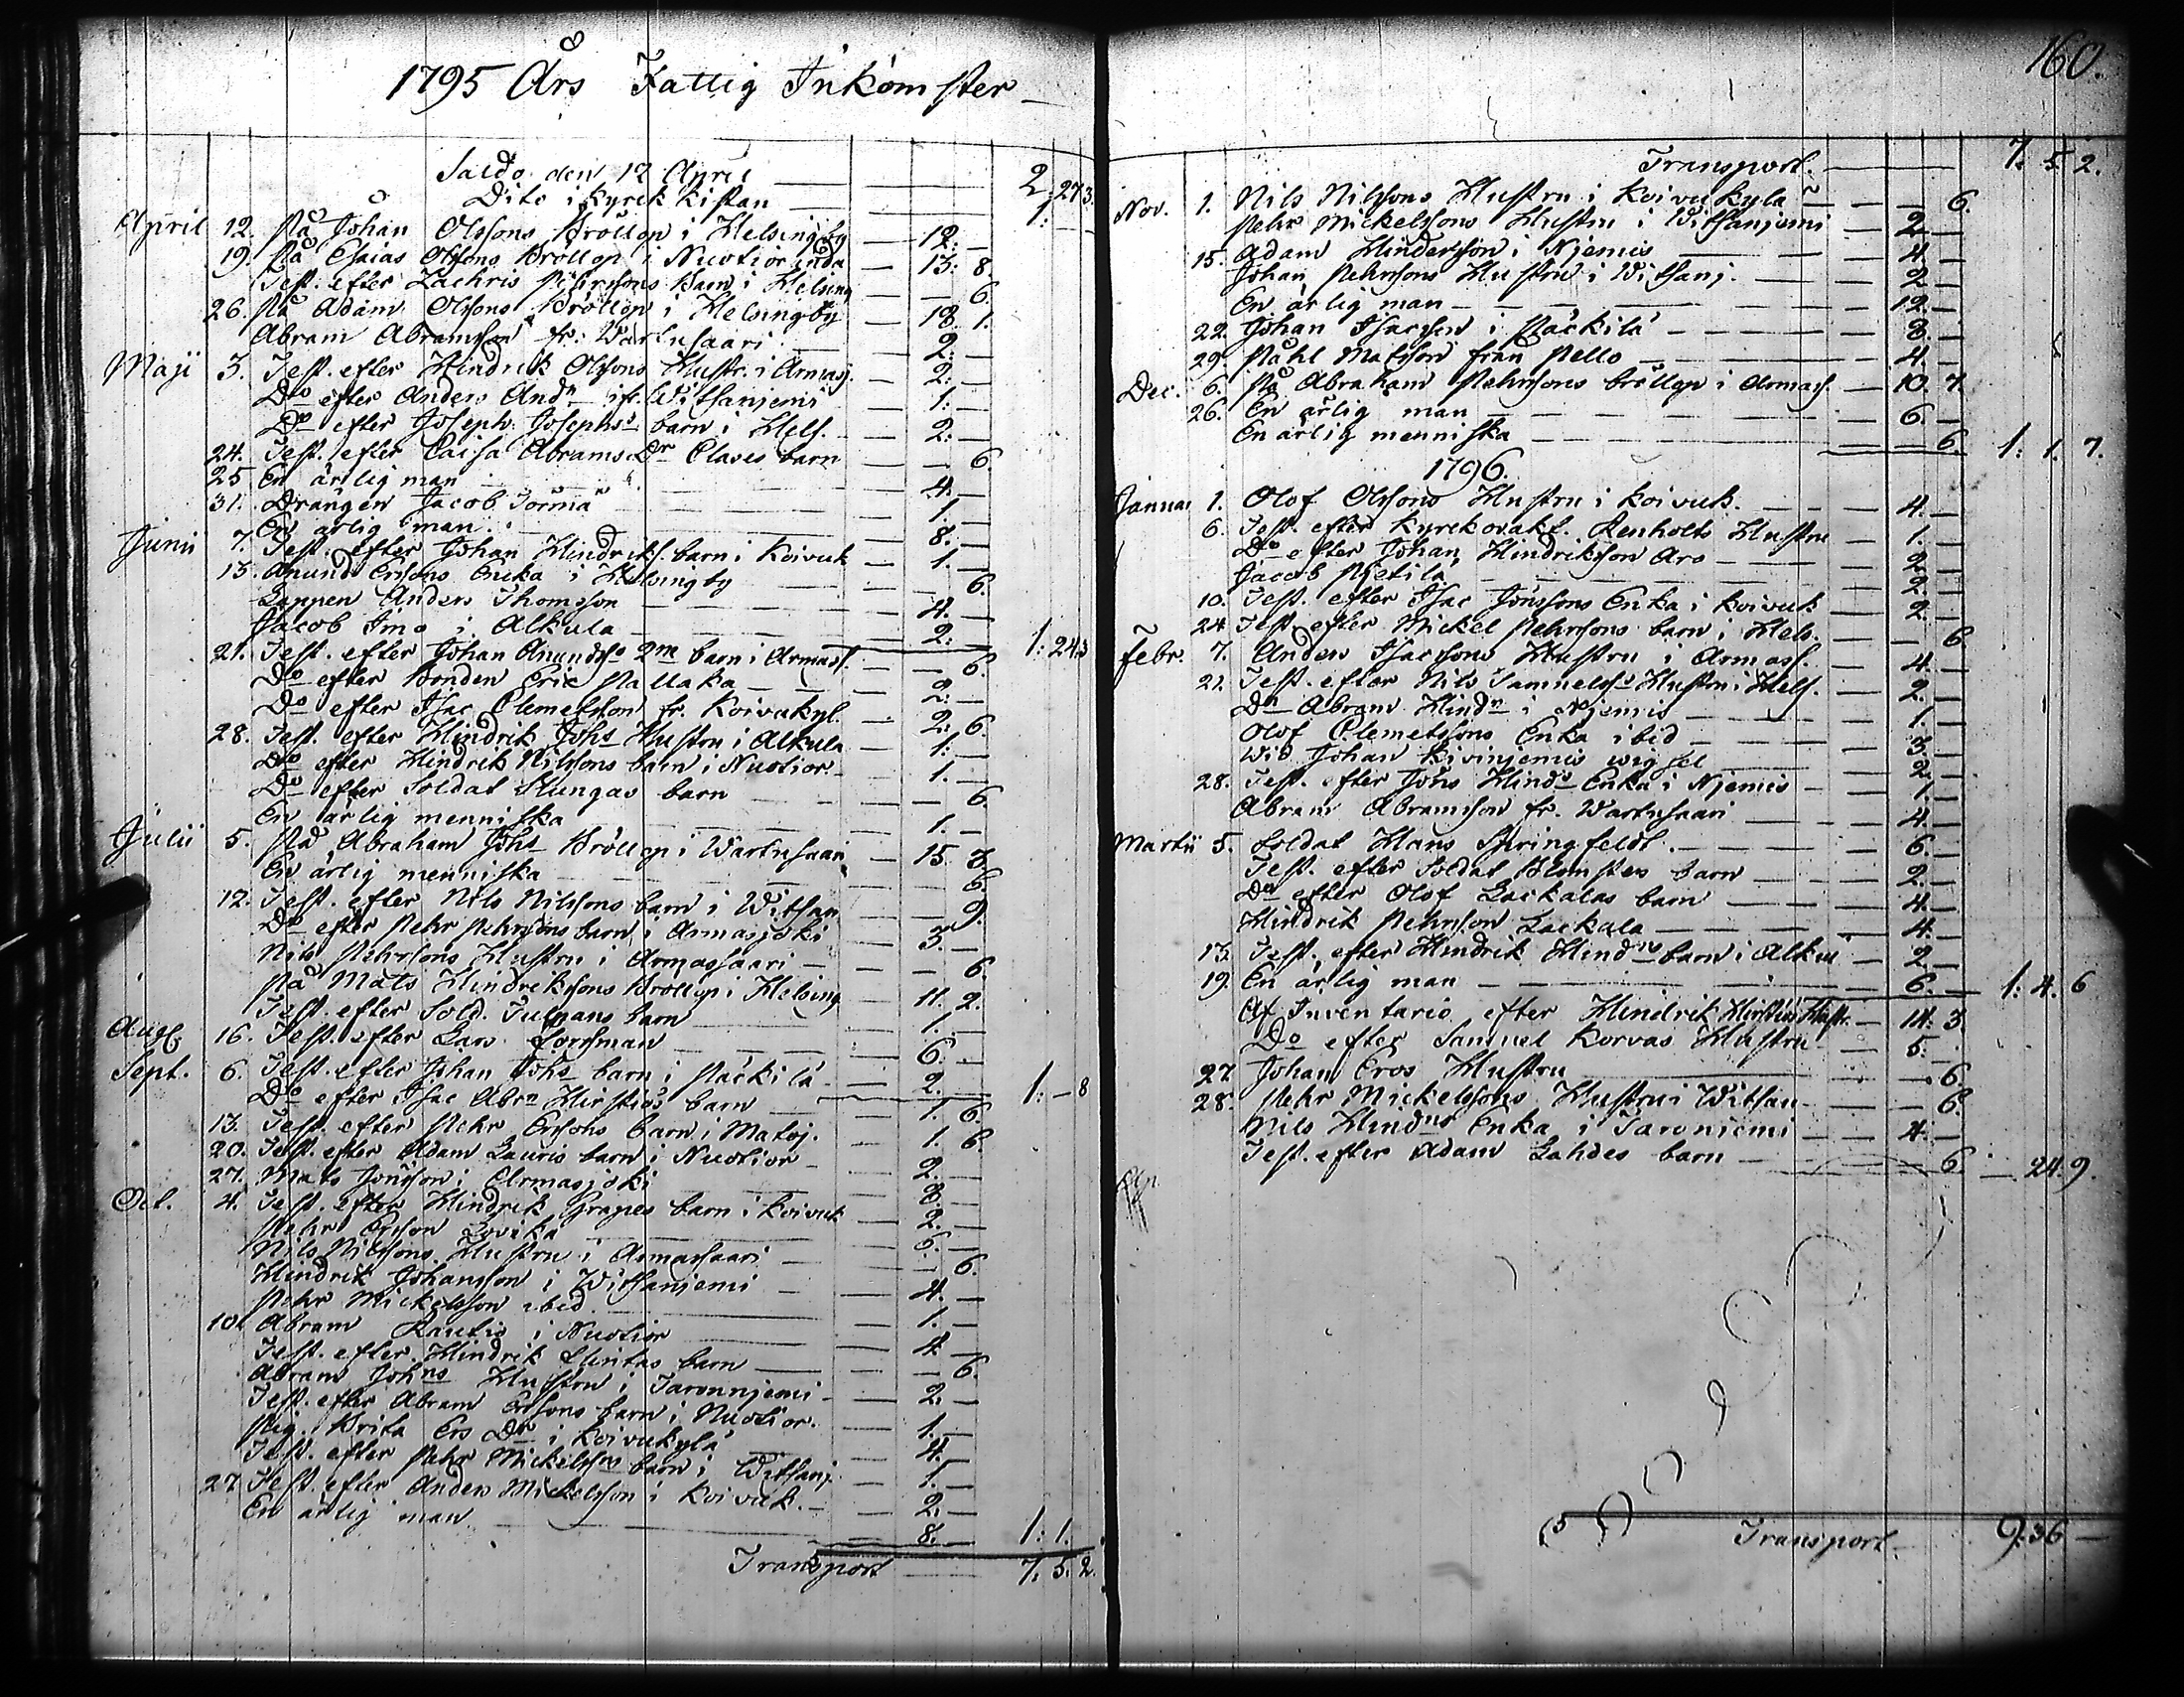 1795 Års Fattig Inkomster
Saldo den 12 April — 2: 27 3.
Dito i kyrck kistan — 1: —
April 12. På Johan Olssons Bröllop i Helsingby — 12. —
19. På Esaias Olssons Bröllop i Nuotioranda — 13: 8.
Test. efter Zachris Pehrssons barn i Helsing — 6.
26. På Adam Olssons Bröllop i Helsingby — 18. 1.
Abram Abramsson fr. Wartusaari — 2: —
Maji 3. Test. efter Hindrik Olssons Hustr. i Armass. — 2: —
Do efter Anders Andn ifr. Witsanjemi — 1: —
Do efter Joseph Josephss barn i Hels. — 2: —
24. Test. efter Caisa Abrams Dr Clases barn — 6.
25 En ärlig man — 4. —
31. Drängen Jacob Jorma — 1. —
En ärlig man — 8. —
Junii 7. Test. efter Johan Hindriks. barn i Koivuk — 1. —
13. Anund Ersons Encka i Helsingby — 6.
Lappen Anders Thomsson — 4. —
Jacob Imo i Alkula — 2: — 1: 24.3
21. Test. efter Johan Anundsso 2ne barn i Armass. — 6.
Do efter Bonden Eric Pallaka — 2: —
Do efter Isac Clemetsson fr. Koivukyl. — 2: 6.
28. Test. efter Hindrik Johs Hustru i Alkula — 1: —
Do efter Hindrik Nilssons barn i Nuotior. — 1. —
Do efter Soldat Slungas barn — 6.
En ärlig menniska — 1. —
Julii 5. På Abraham Johs Bröllop i Wartusaari — 15. 3.
En ärlig menniska — 6.
12. Test. efter Nils Nilssons barn i Witsan — 9.
Do efter Pehr Pehrssons barn i Armasjocki — 3. —
Nils Pehrsons Hustru i Armassaari — 6.
På Mats Hindrikssons Bröllop i Helsing — 11. 2.
Test. efter Sold. Tulpans barn — 1. —
Aug. 16. Test. efter Lars Forssman — 6. —
Sept. 6. Test. efter Johan Johs barn i Päckilä — 2. — 1: — 8
Do efter Isac Abrn Hirstiös barn — 1. 6.
13. Test. efter Pehr Ersons barn i Matoj. — 1. 6.
20. Test. efter Adam Lauris barn i Nuotior — 2. —
27. Mats Jönsson i Armasjocki — 8. —
Oct. 4. Test. efter Hindrik Grapes barn i Koivuk — 2. —
Pehr Ersson Lovika — 6. —
Nils Nilssons Hustru i Armassaari — 6.
Hindrik Johansson i Witsanjemi — 4. —
Pehr Mickelsson ibid. — 1. —
10. Abram Rautio i Nuotior — 4. —
Test. efter Hindrik Slintas barn — 6.
Abram Johns Hustru i Taroniemi — 2. —
Test. efter Abram Ersons barn i Nuotior. — 1. —
Pig. Brita Ers Dr i Koivukylä — 4. —
Test. efter Pehr Mickelssns barn i Witsanj. — 1. —
27 Test. efter Anders Mickelsson i Koivuk. — 2. —
En ärlig man — 8. — 1: 1.
Transport — 7. 5. 2.
160.
Transport. — 7. 5 2.
Nov. 1. Nils Nilssons Hustru i Koivukyla — 6.
Pehr Mickelssons Hustru i Witsanjemi — 2. —
15. Adam Hindersson i Njemis — 4. —
Johan Pehrssons Hustru i Witsanj. — 2 —
En ärlig man — 12. —
22. Johan Isacsson i Päckilä — 8. —
29. Påhl Matsson från Pello — 4. —
Dec. 6. På Abraham Pehrssons bröllop i Armass. — 10. 7.
26. En ärlig man — 6. —
En ärlig menniska — 6. 1: 1. 7.
1796.
Januar 1. Olof Olssons Hustru i Koivuk. — 4. —
6. Test. efter Kyrckovakt. Renholts Hustru — 1. —
Do efter Johan Hindriksson Aro — 2. —
Jacob Pietilä — 2. —
10. Test. efter Isac Jönssons Enka i Koivuk — 2. —
24 Test. efter Mickel Pehrssons barn i Hels. — 6.
Febr. 7. Anders Isacssons Hustru i Armass. — 4. —
21. Test. efter Nils Samuelsss Hustru i Hels. — 2. —
Do Abram Hindn i Njemis — 1. —
Olof Clemetssons Enka ibid — 3. —
Wid Johan Kivinjemis wigsel — 2. —
28. Test. efter Jöns Hinds Enka i Njemis — 1. —
Abram Abramsson fr. Wartusaari — 4. —
Martii 5. Soldat Hans Springfeldt. — 6. —
Test. efter Soldat Blomsters barn — 2. —
Do efter Olof Lackalas barn — 4. —
Hindrik Pehrsson Lackala — 4. —
13. Test. efter Hindrik Hindns barn i Alkul — 2. —
19. En ärlig man — 6. — 1: 4. 6
Af Inventario efter Hindrik Hirstiös Hustr. — 14. 3.
Do efter Samuel Korvas Hustru — 5. —
27. Johan Eros Hustru — 6.
28. Pehr Mickelssons Hustru i Witsan — 6.
Nils Hindns Enka i Taroniemi — 4. —
Test. efter Adam Lahdes barn — 6. — 24. 9.
Transport. 9: 36 —